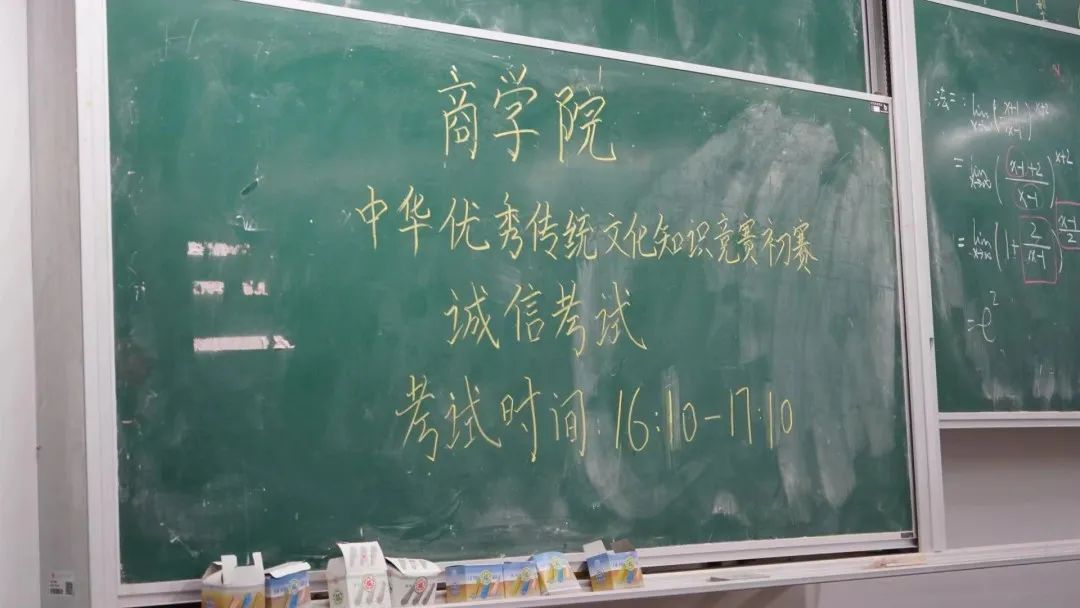 商学院
中华优秀传统文化知识竞赛初赛
诚信考试
考试时间:16:10-17:10
法二: lim x→∞ (x+1/x-1)^x+2
= lim x→∞ (x-1+2/x-1)^x+2
= lim x→∞ (1+ 2/x-1)
= e^2